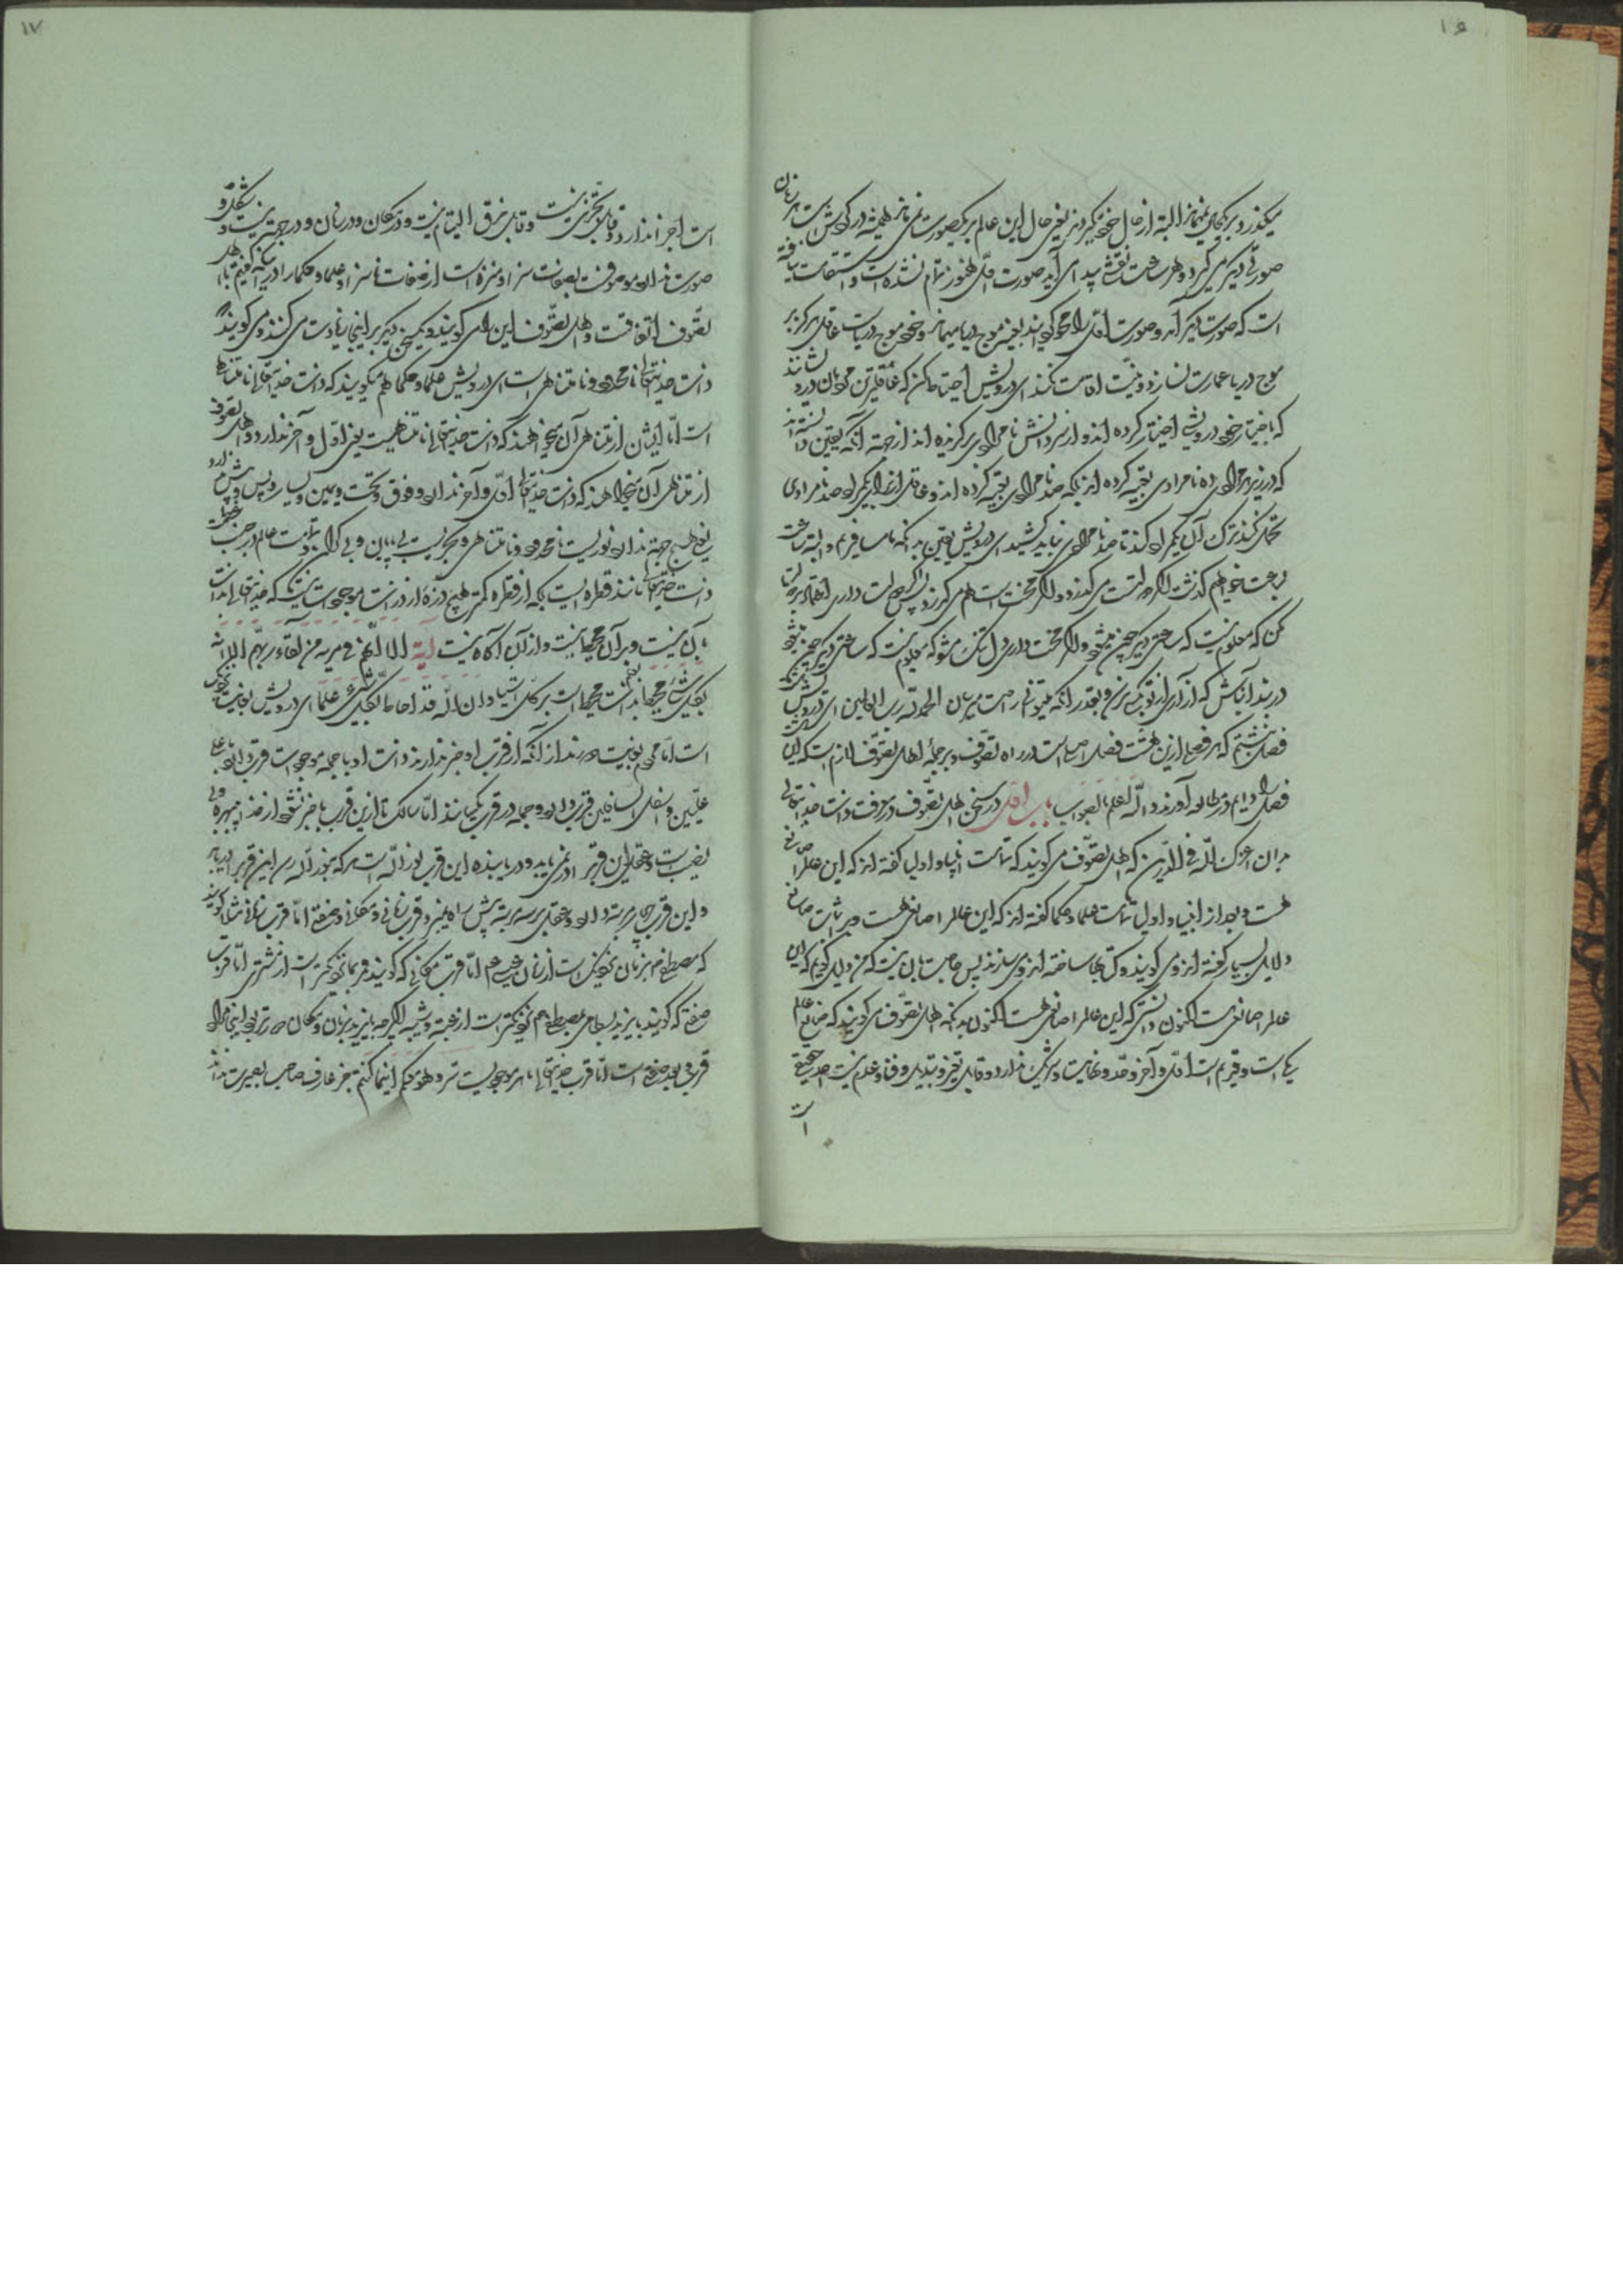 ۱۶
میگذرد و بر یکحال نمیماند البته از حال خود میگردد یعنی حال این عالم بر یک صورت نمی ماند همیشه در گردش است هر زمان
صورتی دیگر می گیرد و هر ساعت نقشی پیدا می آید صورت اول هنوز تمام نشده است و استقامت نیافته
است که صورت دیگر آمد و صورت اول را محو گردانید بعینه موج دریا میماند و خود موج دریاست عاقل هرگز بر
موج دریا عمارت نسازد و نیت اقامت نکند ای درویش اختیار کن که عاقلترین مردمان درویشانند
که باختیار خود درویشی اختیار کرده اند و از سر دانش نامرادی برگزیده اند از جهة آنکه یقین دانسته اند
که در زیر هر مرادی ده نامرادی تعبیه کرده اند بلکه صد نامرادی تعبیه کرده اند و عاقل از برای یک مراد صد نامرادی
تحمل نکند ترک آن یک مراد کند تا صد نامرادی نباید کشید ای درویش یقین بدانکه ما مسافریم و البته ساعت
بساعت خواهیم گذشت اگر دولت است می گذرد و اگر محنت است هم می گذرد پس اگر دولت داری اعتماد بر دولت
مکن که معلوم نیست که ساعتی دیگر چون میشود و اگر محنت داری دل تنگ مشو که معلوم نیست که ساعتی دیگر چون میشود
در بند آن باش که آزاری از تو بکسی نرسد و بقدر آنکه میتوانی راحت میرسان الحمد لله رب العالمین ای درویش
فصل نبشتم که هر فصلی ازین هشت فصل اصلی است در راه تصوف و بر جملهٔ اهل تصوف لازم است که این
فصل را دایم در مطالعه آورند والله اعلم بالصواب باب اول در سخن اهل تصوف در معرفت ذات خدایتعالی
بدان اعزک الله فی الدارین که اهل تصوف می گویند که تمامت انبیا و اولیا گفته اند که این عالم را صانعی
هست و بعد از انبیا و اولیا تمامت علما و حکما گفته اند که این عالم را صانعی هست و در اثبات صانع
دلایل بسیار گفته اند و می گویند و کتابها ساخته اند و می سازند پس حاجت بآن نیست که من دلیل گویم که این
عالم را صانعی هست اکنون چون دانستی که این عالم را صانعی هست اکنون بدانکه اهل تصوف می گویند که صانع عالم
یکی است و قدیم است اول و آخر و حد و نهایت و شریک ندارد و قابل تغیر و تبدیل و فنا و عدم نیست احد حقیقی
است
۱۷
است اجزا ندارد و قابل تجزی نیست و قابل خرق و التیام نیست و در مکان و در زمان و در جهة نیست و شکل و
صورت ندارد موصوفست بصفات سزا و منزه است از صفات ناسزا و علما و حکما را درین که گفتیم با اهل
تصوف اتفاقست و اهل تصوف این را می گویند و یک سخن دیگر بر اینجا زیادت می کنند و می گویند که
ذات خدایتعالی نامحدود و نامتناهی است ای درویش علما و حکما هم میگویند که ذات خدایتعالی نامتناهی
است اما ایشان از نامتناهی آن میخواهند که ذات خدایتعالی نامتناهیست یعنی اول و آخر ندارد و اهل تصوف
از نامتناهی آن میخواهند که ذات خدایتعالی اول و آخر ندارد و فوق و تحت و یمین و یسار و پس و پیش ندارد
یعنی هیچ جهة ندارد نوریست نامحدود و نامتناهی و بحریست بی پایان و بی کران و تمامت عالم در جنب عظمت
ذات خدایتعالی مانند قطره ایست بلکه از قطره کمتر هیچ ذره از ذرات موجودات نیست که خدایتعالی بذات
با آن نیست و بر آن محیط نیست و از آن آگاه نیست آیة الا انهم فی مریة من لقاء ربهم الا انه
بکل شیء محیط بذات محیط است بر کل اشیا و ان الله قد احاط بکل شیء علما ای درویش بغایت نزدیک
است اما مردم بغایت دورند از آنکه از قرب او خبر ندارند و ذات او با جمله موجودات قرب دارد اعلی
علیین و اسفل السافلین قرب دارد و جمله در قرب یکسانند اما سالک تا ازین قرب با خبر نشود از خدا بی بهره و بی
نصیب است و عقل این قرب را درنمی یابد و دریابنده این قرب نور الله است هر که بنور الله رسد این قرب را دریابد
و این قرب چهار مرتبه دارد و عقل بر سه مرتبه پیش راه نمی برد قرب زمانی و مکانی و صفتی اما قرب زمانی مثلا گویند
که مصطفی م بزمان نزدیکتر است از زمان عیسی م اما قرب مکانی که گویند قمر بما نزدیکتر است از مشتری اما قرب
صفتی که گویند بایزید بسطامی بمصطفی م نزدیکتر است از عتبه و شیبه اگرچه بایزید بزمان و مکان دورتر بود اینجا مراد
قرب و بعد صفتی است اما قرب خدایتعالی با هر موجودیست سر و هو معکم اینما کنتم جز عارف صاحب بصیرت نداند